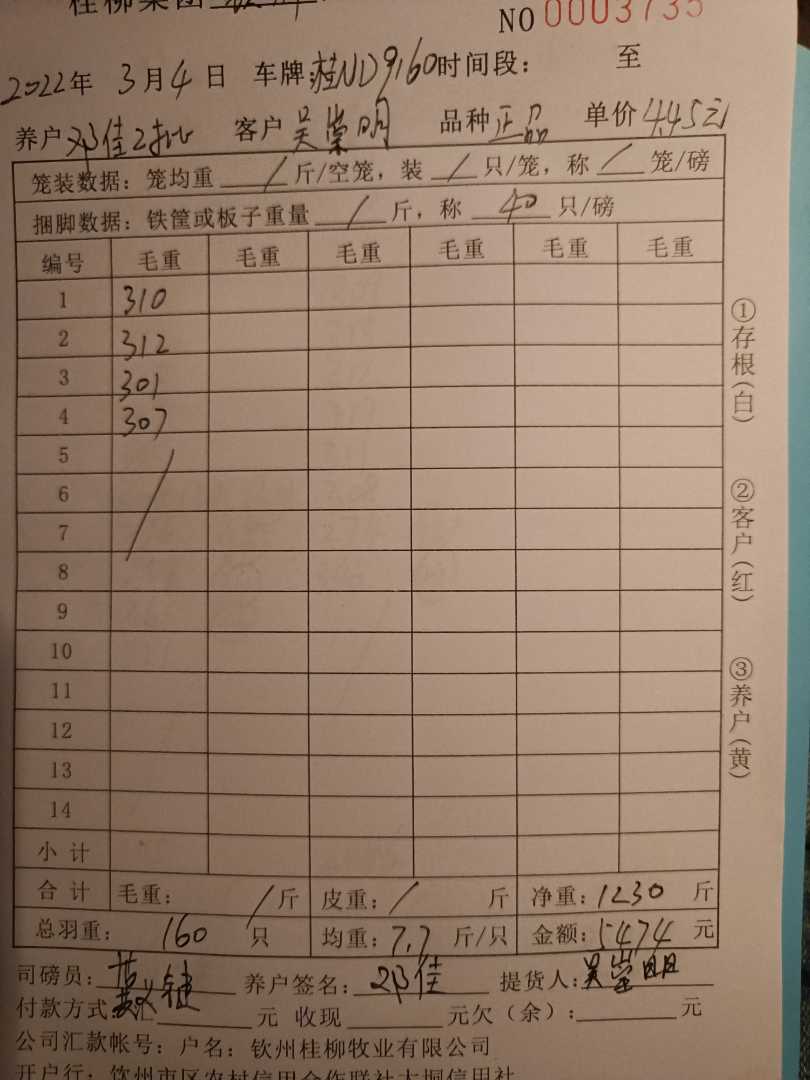 桂柳集团
NO 0003735
2022年 3月4日 车牌:桂ND9160时间段: 至
养户邓佳2批 客户吴崇明 品种正品 单价4.45元
笼装数据: 笼均重 / 斤/空笼, 装 / 只/笼, 称 / 笼/磅
捆脚数据: 铁筐或板子重量 / 斤, 称 40 只/磅
编号 毛重 毛重 毛重 毛重 毛重 毛重
1 310
2 312
3 301
4 307
5
6
7
8
9
10
11
12
13
14
小计
合计 毛重: / 斤 皮重: / 斤 净重: 1230 斤
总羽重: 160 只 均重: 7.7 斤/只 金额: 5474 元
司磅员: 养户签名: 邓佳 提货人: 吴崇明
付款方式: 汇 元 收现 元欠(余): 元
公司汇款帐号: 户名: 钦州桂柳牧业有限公司
开户行: 钦州市区农村信用合作联社大垌信用社
①存根(白)
②客户(红)
③养户(黄)